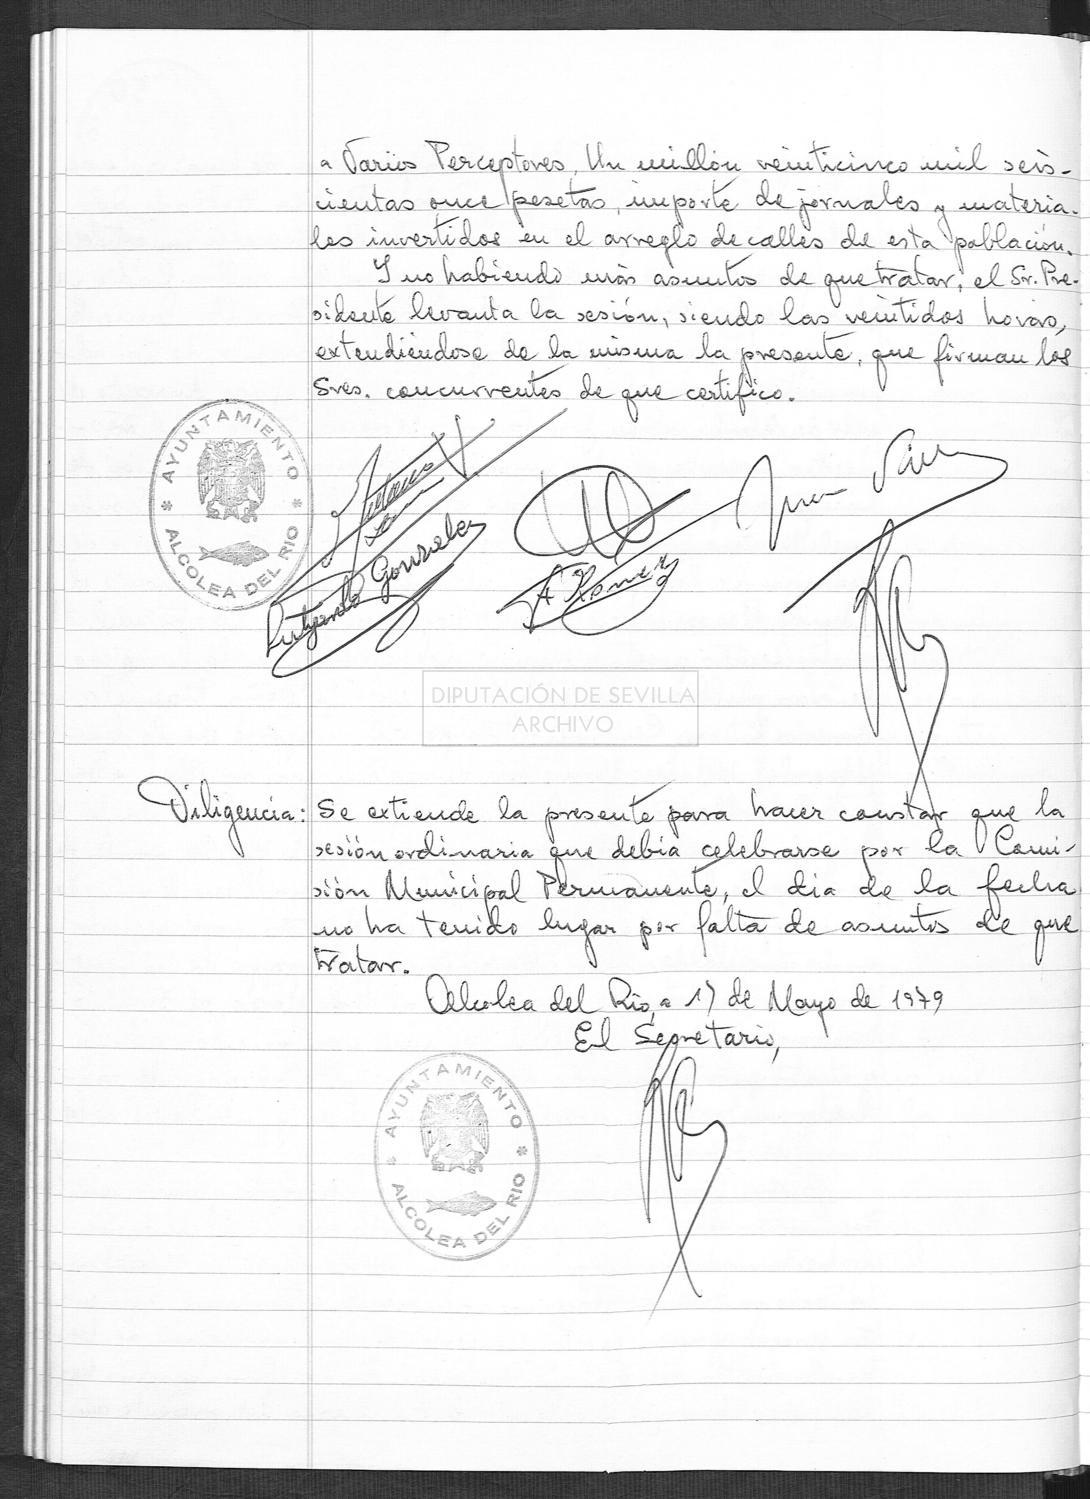 a Varios Perceptores, Un millón veinticinco mil seis-
cientas once pesetas, importe de jornales y materia-
les invertidos en el arreglo de calles de esta población.
Y no habiendo más asuntos de que tratar, el Sr. Pre-
sidente levanta la sesión, siendo las veintidos horas,
extendiéndose de la misma la presente, que firman los
Sres. concurrentes de que certifico.
AYUNTAMIENTO
* ALCOLEA DEL RIO *
Antonio
González
A Romer
Juan
DIPUTACIÓN DE SEVILLA
ARCHIVO
Diligencia: Se extiende la presente para hacer constar que la
sesión ordinaria que debía celebrarse por la Comi-
sión Municipal Permanente, el dia de la fecha
no ha tenido lugar por falta de asuntos de que
tratar.
Alcolea del Rio, a 17 de Mayo de 1979
El Secretario,
AYUNTAMIENTO
* ALCOLEA DEL RIO *